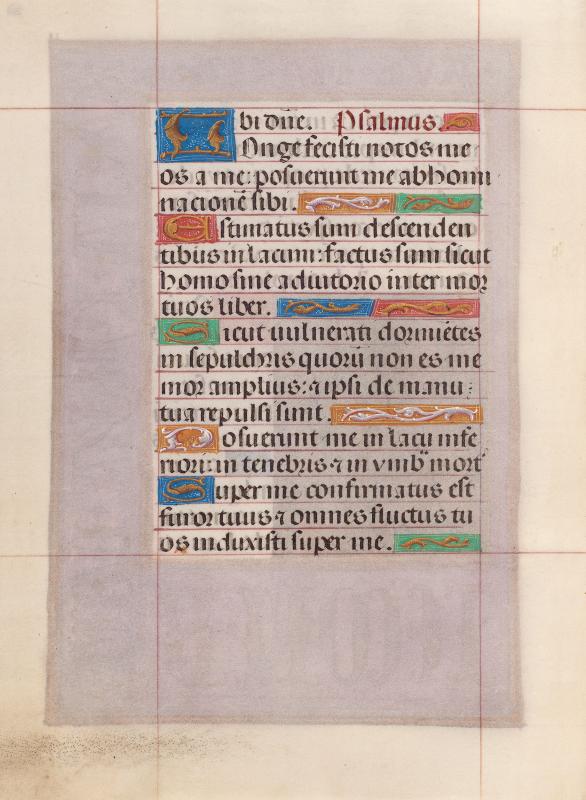 bi dñe. Psalmus.
LOnge fecisti notos me
os a me: posuerunt me abhomi
nacionē sibi.
Estimatus sum descenden
tibus in lacum: factus sum sicut
homo sine adiutorio inter mor
tuos liber.
Sicut uulnerati dormiētes
in sepulchris quorū non es me
mor amplius: ⁊ ipsi de manu
tua repulsi sunt.
Posuerunt me in lacu infe
riori: in tenebris ⁊ in vmbᵃ mort᾽
Super me confirmatus est
furor tuus ⁊ omnes fluctus tu
os induxisti super me.